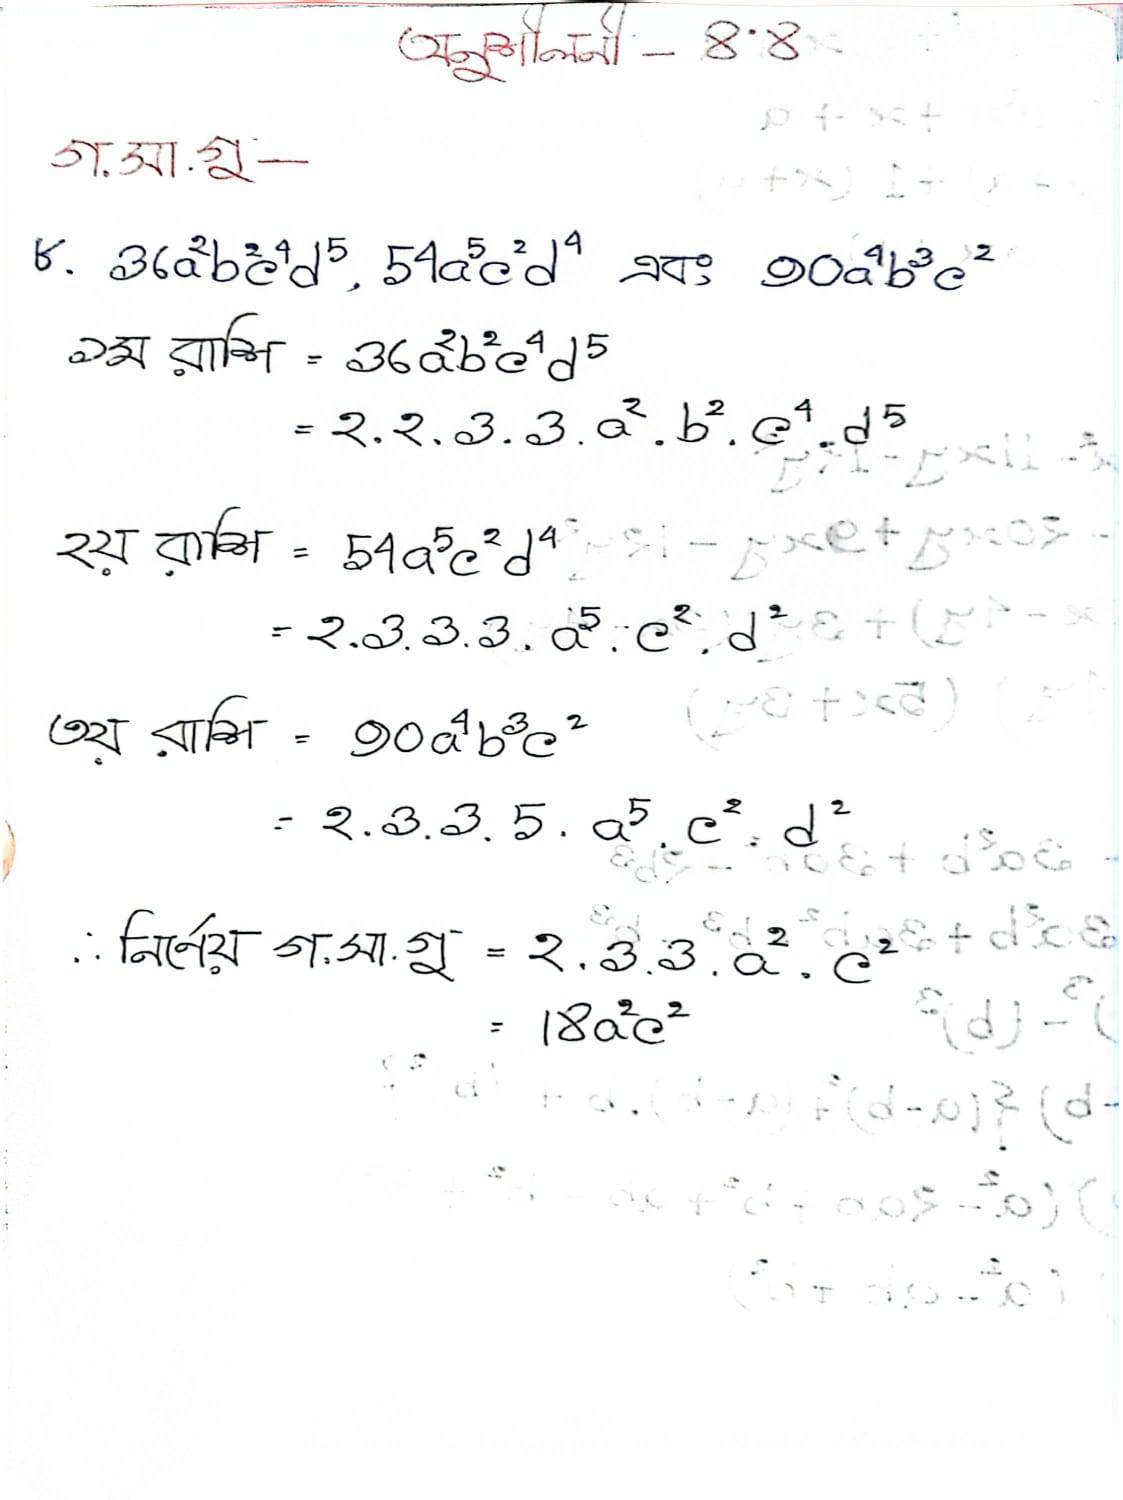 অনুশীলনী - ৪.৪
গ.সা.গু -
৮. 36a²b²c⁴d⁵, 54a⁵c²d⁴ এবং 90a⁴b³c²
১ম রাশি = 36a²b²c⁴d⁵
= 2.2.3.3.a².b².c⁴.d⁵
২য় রাশি = 54a⁵c²d⁴
= 2.3.3.3.a⁵.c².d²
৩য় রাশি = 90a⁴b³c²
= 2.3.3.5.a⁵.c².d²
∴ নির্ণেয় গ.সা.গু = 2.3.3.a².c²
= 18a²c²